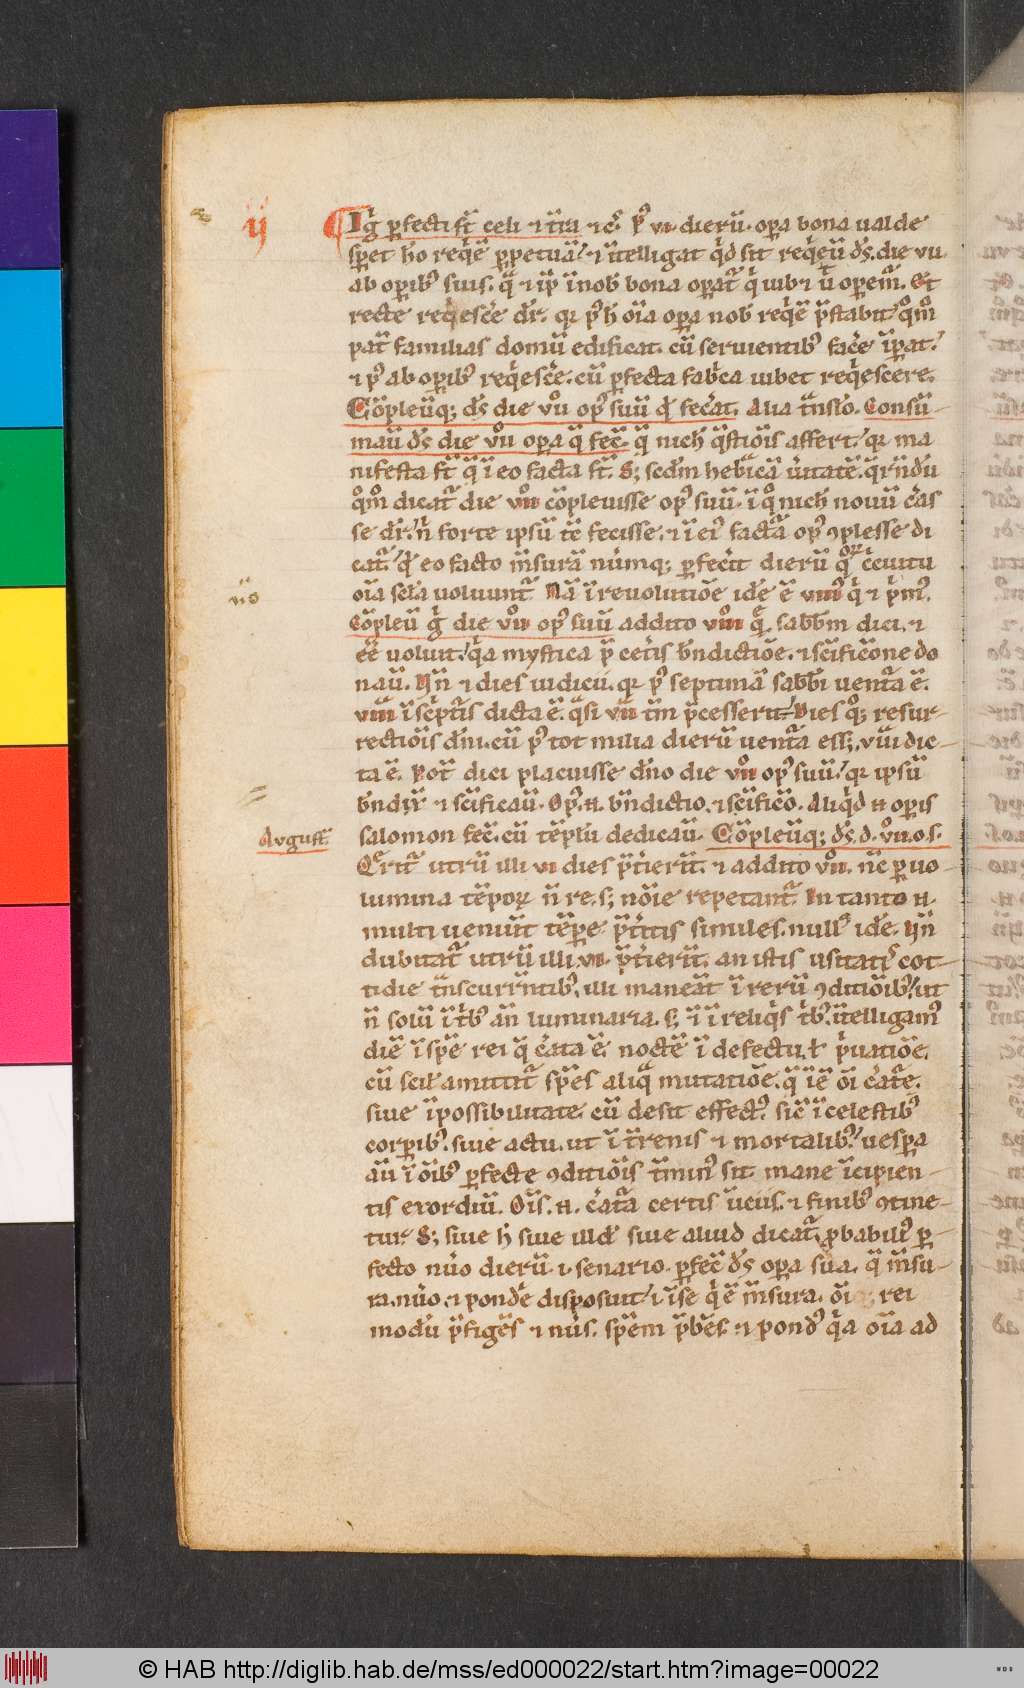 ij
Igr̃ ꝑfecti st̃ celi ⁊ tr̃a ⁊ cͣ. pꝰ vi dierũ opa bona ualde
speret hõ reqͥẽ perpetuã ⁊ ĩtelligat qͥd sit reqͥeũ ds̃. die vii
ab opibꝰ suis. q̃ ⁊ ip̃ ĩ nob̃ bona opat̃ qͥ iub⁊ ũ opem̃. Et
recte reqͥescẽ dr̃. qꝛ pꝰ h̃ oĩa opa nob̃ reqͥẽ p̃stabit qͦm̃
pat̃ familias domũ edificat. cũ seruientibꝰ facẽ ĩpat.
⁊ pꝰ ab opibꝰ reqͥescẽ. cũ ꝑfecta fabͥca iubet reqͥescere.
Cõpleuitq; ds̃ die vii opꝰ suũ qd̃ fecãt. Alia tñslo. Consũ
mauit ds̃ die vii opa q̃ fec̃. q̃ nich̃ qͣstiõis affert. qꝛ ma
nifesta st̃ q̃ ĩ eo facta st̃. S; scdm̃ hebͣicã ũitatẽ. qͥrñdũ
qͦm̃ dicat̃ die vii cõpleuisse opꝰ suũ. ĩ qͦ nich̃ nouũ cͣas
se dr̃. ñ forte ipsũ tẽ fecisse. ⁊ ĩ eiꝰ factã opꝰ ꝯplesse di
cat̃. qd̃ eo facto m̃surã nũmq; ꝑfecit dierũ
oĩa scl̃a uoluunt̃ Nã ĩ reuolutiõe idẽ ẽ viii qͥ ⁊ pͥmꝰ.
Cõpleũ gͥ die vii opꝰ suũ addito vii qͥ. sabb̃m dici. ⁊
eẽ uoluit. qͥa mystica p̃ cetis bñdictiõe. ⁊ scĩficõne do
nauit. Hñ ⁊ dies iudicii. qꝛ pꝰ septimã sabb̃i uent̃a ẽ.
viii ĩ scͥptͥs dicta ẽ. qͣsi vii tm̃ p̃cesserit. Dies qͦ; resur-
rectiõis dñi. cũ pꝰ tot milia dierũ uent̃a ess;. viii dic-
ta ẽ. Pot̃ dici placuisse dño die vii opꝰ suũ. qꝛ ipsũ
bñdix̃ ⁊ scĩficauit. Opꝰ .n. bñdictio. ⁊ scĩficõ. Aliqͥd .n. opis
Avgust̃.
salomon fec̃. cũ tẽplũ dedicauit. Cõpleuitq; ds̃. d. vii. o. s.
Qẽrit̃ utrũ illi vi dies p̃tierit̃. ⁊ addito vii. nc̃ ꝑ uo-
lumina tẽpoꝝ ñ re. s; nõie repetant̃. In tanto .n.
multi ueniũt tẽpe p̃titis similes. nullꝰ idẽ. Hñ
dubitat̃ utrũ illi. vi. p̃tierit̃. an istis usitatiꝰ cot-
tidie tñscurrñtibꝰ. illi maneãt ĩ rerũ ꝯditiõibꝰ. ut
ñ solũ ĩ tͥbꝰ añ luminaria. s; ⁊ ĩ reliqͥs tͥbꝰ. ĩtelligamꝰ
diẽ ĩ spẽ rei q̃ cͣata ẽ. noctẽ ĩ defectu. ł pͥuatiõe.
cũ scil̃ amittit̃ spẽs aliqͣ mutatiõe. q̃ ĩẽ oĩ cͣatͤ.
siue ĩpossibilitate. cũ desit effectꝰ. sic̃ ĩ celestibꝰ
corpibꝰ. siue actu. ut ĩ tr̃enis ⁊ mortalibꝰ. uespa
aũ ĩ oĩbꝰ ꝑfecte ꝯditiõis t̃minꝰ sit. mane ĩcipien-
tis exordiũ. Oĩs .n. cͣata certis ũcus. ⁊ finibꝰ ꝯtine-
tur. S; siue h̃ siue illd̃ siue aliud dicat̃. ꝓbabiliꝰ ꝑ-
fecto nũo dierũ .i. senario. ꝑfec̃ ds̃ opa sua. q̃ m̃su-
ra. nũo. ⁊ pondẽ disposuit. ĩse qͥ ẽ m̃sura. oĩ rei
modũ p̃figẽs ⁊ nũs. spẽm p̃bẽs. ⁊ pondꝰ qͥa oĩa ad
© HAB http://diglib.hab.de/mss/ed000022/start.htm?image=00022